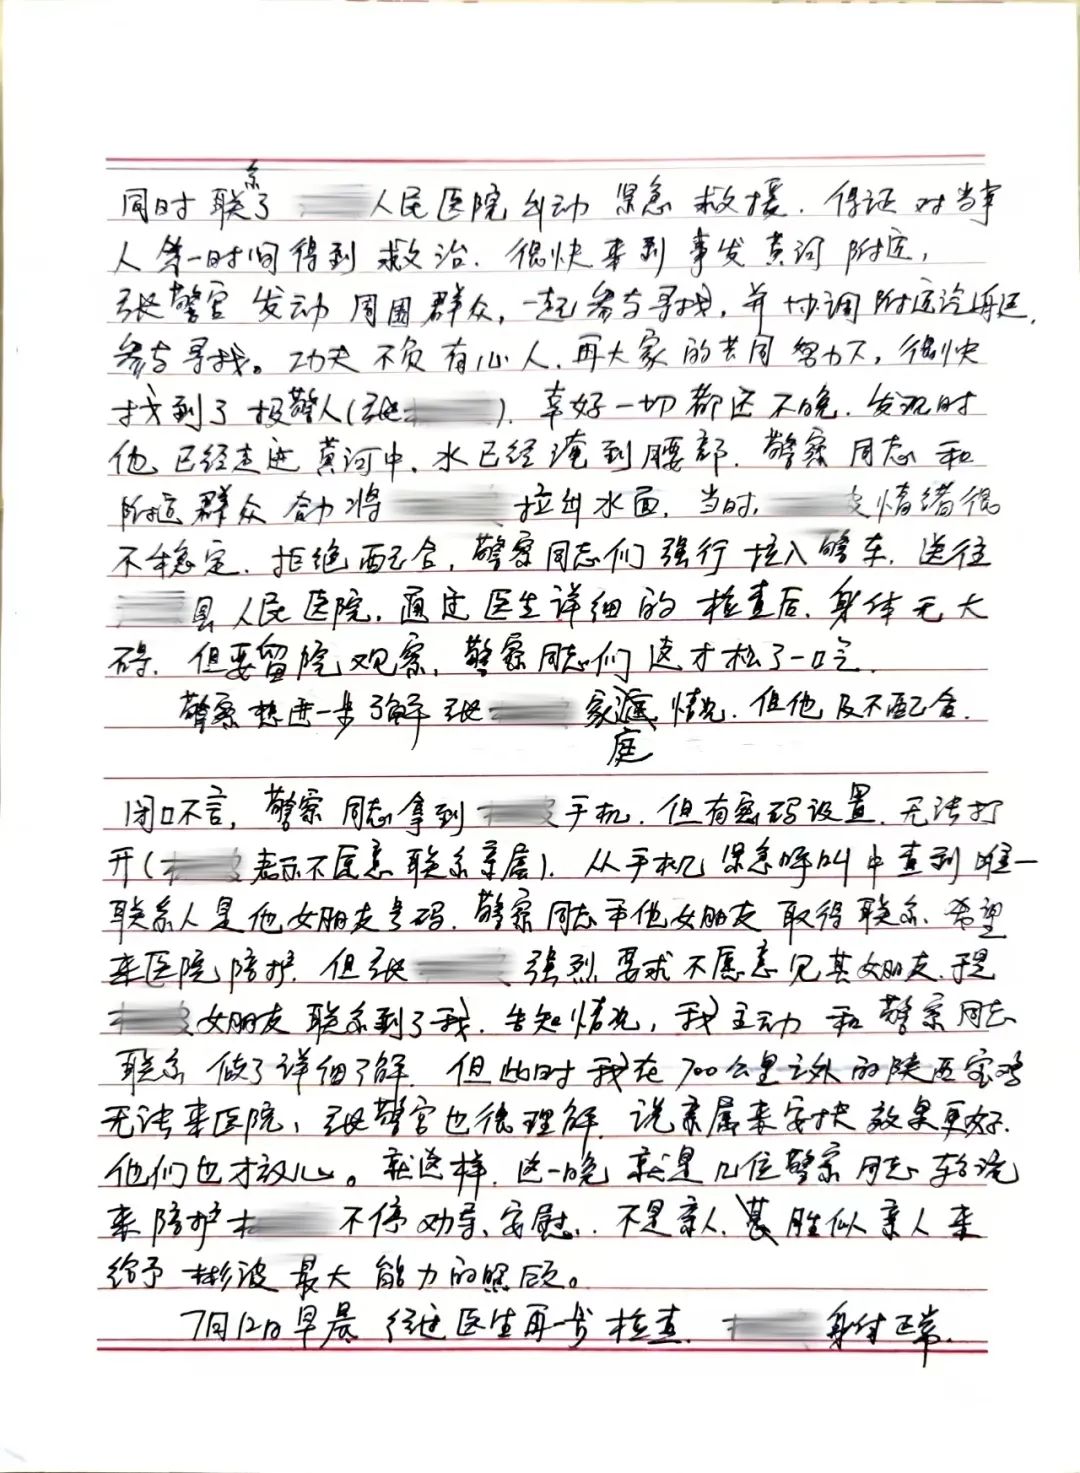 同时联系了 人民医院出动紧急救援.保证对当事
人第一时间得到救治.很快来到事发黄河附近,
张警官发动周围群众,一起参与寻找,并协调附近
参与寻找。功夫不负有心人.再大家的共同努力下,很快
找到了报警人(张 ).幸好一切都还不晚.发现时
他已经走进黄河中.水已经淹到腰部.警察同志和
附近群众合力将 拉出水面.当时, 情绪很
不稳定.拒绝配合,警察同志们强行拉入警车.送往
县人民医院.通过医生详细的检查后.身体无大
碍.但要留院观察,警察同志们这才松了一口气.
警察想进一步了解张 家庭情况.但他及不配合.
闭口不言,警察同志拿到 手机.但有密码设置.无法打
开( 表示不愿意联系亲属).从手机紧急呼叫中查到唯一
联系人是他女朋友号码.警察同志和他女朋友取得联系.希望
来医院陪护.但张 强烈要求不愿意见其女朋友.于是
女朋友联系到了我.告知情况,我主动和警察同志
联系做了详细了解.但此时我在700公里之外的陕西宝鸡
无法来医院,张警官也很理解.说亲属来安抚效果更好.
他们也才放心。就这样.这一晚就是几位警察同志轮流
来陪护 不停劝导、安慰..不是亲人.甚胜似亲人来
给予彬波最大能力的照顾。
7月12日早晨经过医生再一步检查. 身体正常.